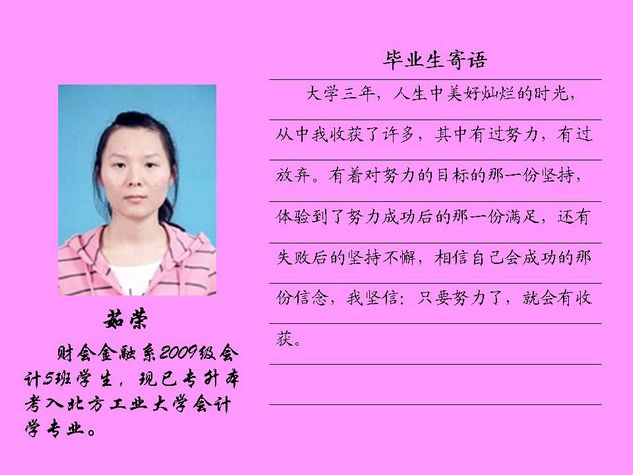 毕业生寄语
大学三年，人生中美好灿烂的时光，
从中我收获了许多，其中有过努力，有过
放弃。有着对努力的目标的那一份坚持，
体验到了努力成功后的那一份满足，还有
失败后的坚持不懈，相信自己会成功的那
份信念，我坚信：只要努力了，就会有收
获。
茹荣
财会金融系2009级会
计5班学生，现已专升本
考入北方工业大学会计
学专业。